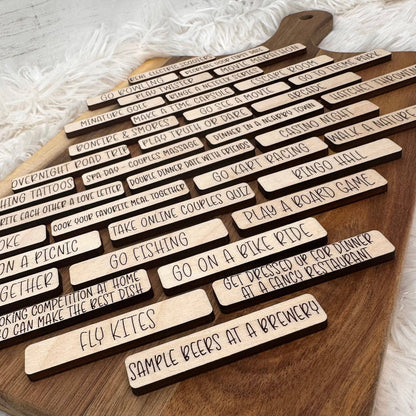 RENT ELECTRIC SCOOTERS
REPLACE YOUR FIRST DATE
MOVIE MARATHON
GO BOWLING
PLAY TWISTER
BINGE A NETFLIX SERIES
ESCAPE ROOM
GO TO THEME PARK
MINIATURE GOLF
MAKE A TIME CAPSULE
GO SEE A MOVIE
ARCADE
HATCHET THROWING
BONFIRE & SMORES
PLAY TRUTH OR DARE
DINNER IN A NEARBY TOWN
OVERNIGHT ROAD TRIP
SPA DAY
COUPLES MASSAGE
DOUBLE DINNER DATE WITH FRIENDS
CASINO NIGHT
WALK A NATURE
TATTOOS
EACH OTHER A LOVE LETTER
COOK YOUR FAVORITE MEAL TOGETHER
GO KART RACING
BINGO HALL
TAKE ONLINE COUPLES QUIZ
PLAY A BOARD GAME
ON A PICNIC
GO FISHING
GO ON A BIKE RIDE
GET DRESSED UP FOR DINNER
AT A FANCY RESTAURANT
COMPETITION AT HOME
CAN MAKE THE BEST DISH
FLY KITES
SAMPLE BEERS AT A BREWERY